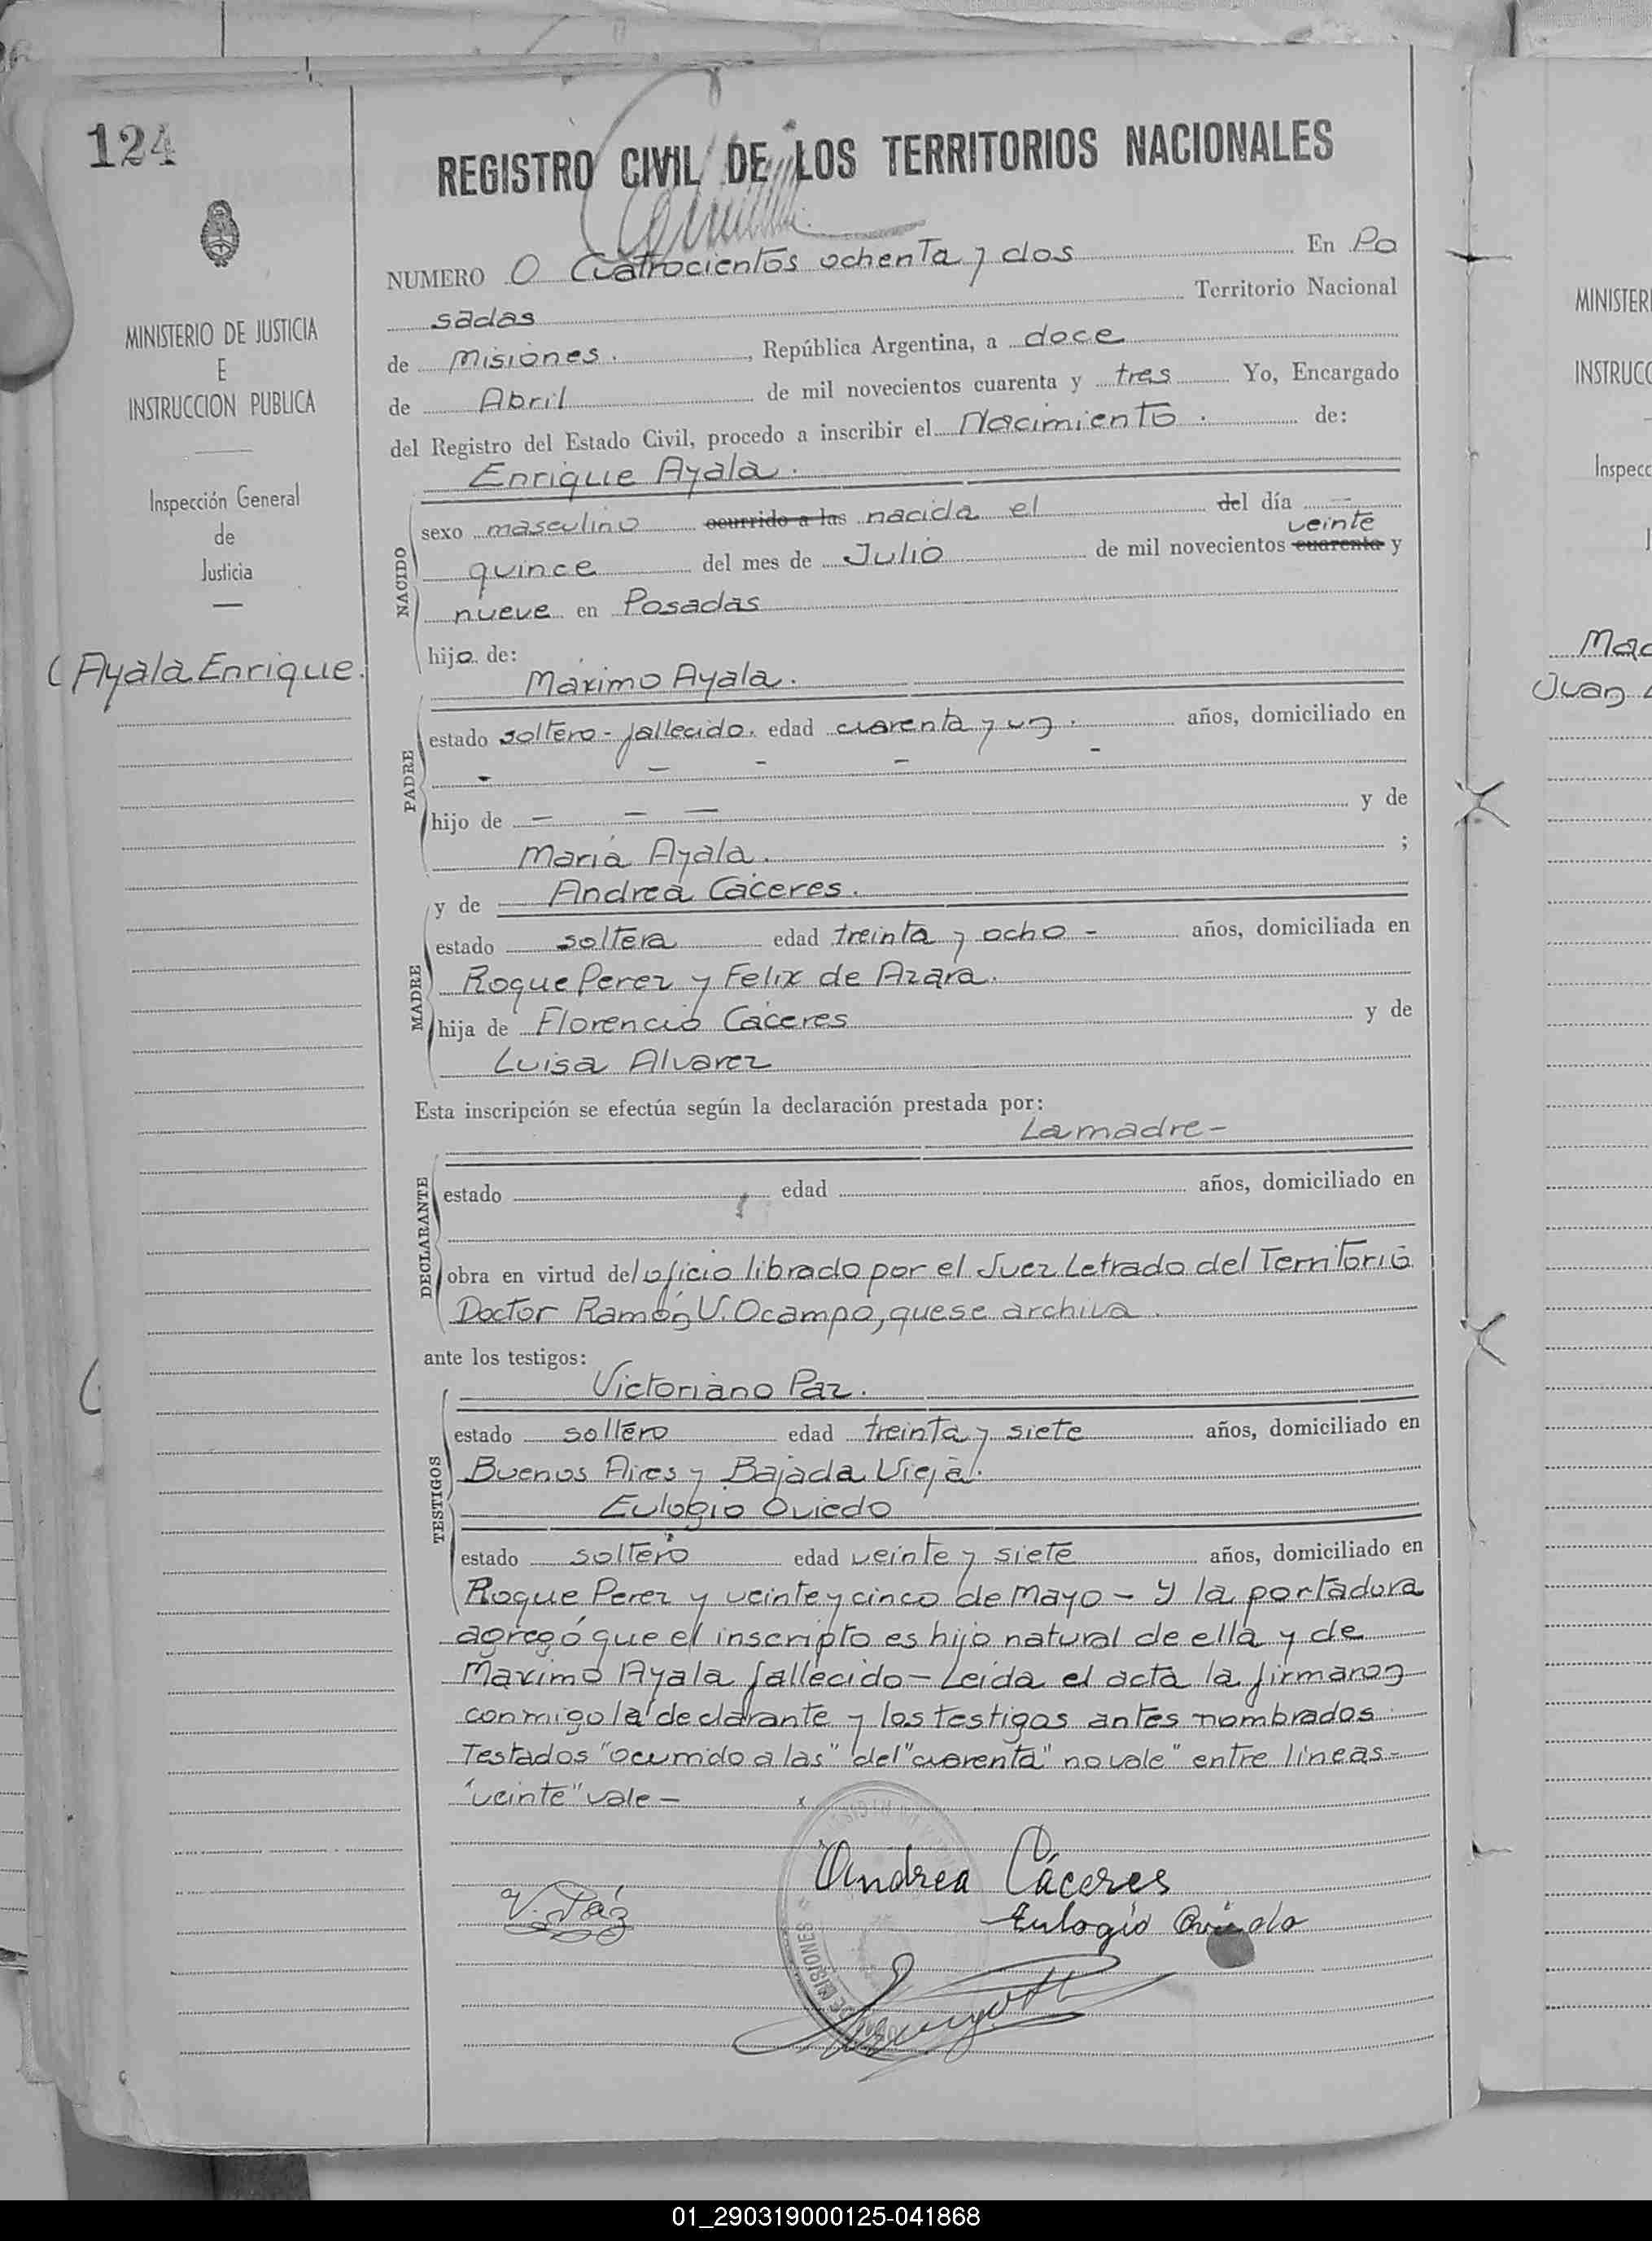 124
REGISTRO CIVIL DE LOS TERRITORIOS NACIONALES
MINISTERIO DE JUSTICIA
E
INSTRUCCION PUBLICA
Inspección General
de
Justicia
(Ayala Enrique.
NUMERO O Cuatrocientos ochenta y dos En Po
sadas Territorio Nacional
de Misiones. , República Argentina, a doce
de Abril de mil novecientos cuarenta y tres Yo, Encargado
del Registro del Estado Civil, procedo a inscribir el Nacimiento. de:
Enrique Ayala.
NACIDO
sexo masculino ocurrido a las nacida el del día —
veinte
quince del mes de Julio de mil novecientos cuarenta y
nueve en Posadas
hijo de:
Máximo Ayala.
PADRE
estado soltero - fallecido. edad cuarenta y un. años, domiciliado en
- — - — -
hijo de — — — y de
María Ayala. ;
y de Andrea Cáceres.
MADRE
estado soltera edad treinta y ocho - años, domiciliada en
Roque Perez y Felix de Azara.
hija de Florencio Cáceres y de
Luisa Alvarez
Esta inscripción se efectúa según la declaración prestada por:
La madre -
DECLARANTE
estado edad años, domiciliado en
obra en virtud del oficio librado por el Juez Letrado del Territorio
Doctor Ramón V. Ocampo, que se archiva.
ante los testigos:
Victoriano Paz.
TESTIGOS
estado soltero edad treinta y siete años, domiciliado en
Buenos Aires y Bajada Vieja.
Eulogio Oviedo
estado soltero edad veinte y siete años, domiciliado en
Roque Perez y veinte y cinco de Mayo - y la portadora
agregó que el inscripto es hijo natural de ella y de
Maximo Ayala fallecido - Leida el acta la firmaron
conmigo la declarante y los testigos antes nombrados
Testados "ocurrido a las" del "cuarenta" no vale" entre líneas -
"veinte" vale -
Andrea Cáceres
V. Páz
Eulogio Oviedo
DE MISIONES
MINISTER
INSTRUCC
Inspecc
Mac
Juan
01_290319000125-041868